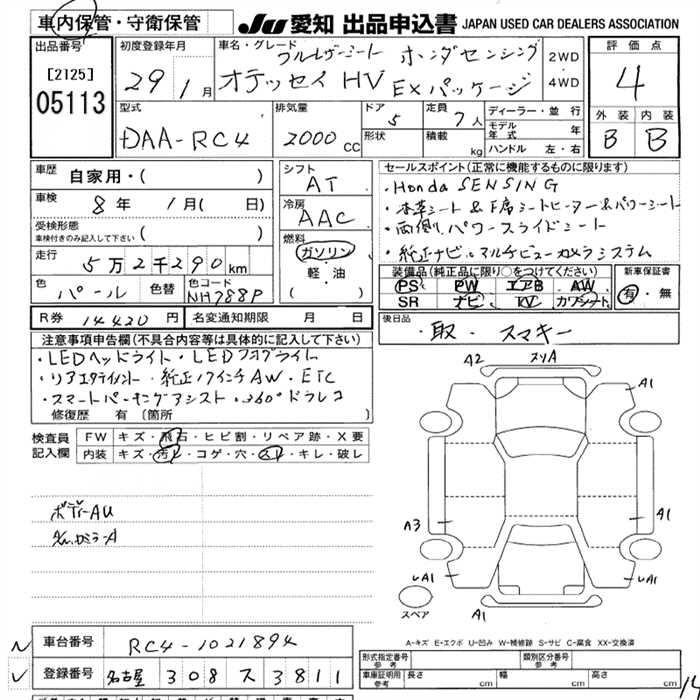 車内保管・守衛保管
JU 愛知 出品申込書 JAPAN USED CAR DEALERS ASSOCIATION
出品番号
[2125]
05113
初度登録年月
29年 1月
車名・グレード
フルレザーシート ホンダセンシング
オデッセイHV EXパッケージ
2WD
4WD
評価点
4
外装 内装
B B
型式
DAA-RC4
排気量
2000 CC
ドア 5
形状
定員 7人
積載 kg
ディーラー・並行
モデル年式 年
ハンドル 左・右
車歴 自家用・( )
車検 8年 1月( 日)
受検形態
車検付きのみ記入して下さい ( )
走行 5万2千290km
色 パール 色替 色コード NH788P
シフト
AT
冷房
AAC
燃料
ガソリン
軽・油
( )
セールスポイント(正常に機能するものに限ります)
・Honda SENSING
・本革シート&F席シートヒーター&パワーシート
・両側パワースライドシート
・純正ナビ&マルチビューカメラシステム
装備品(純正品に限り○をつけてください)
PS PW エアB AW
SR ナビ TV カワシート
新車保証書
有・無
R券 14420円 名変通知期限 月 日
後日品
・取、スマキー
注意事項申告欄(不具合内容等は具体的に記入して下さい)
・LEDヘッドライト・LEDフォグライト
・リアエンタテイメント・純正17インチAW・ETC
・スマートパーキングアシスト・360°ドラレコ
修復歴 有 [箇所
検査員記入欄
FW キズ・飛石・ヒビ割・リペア跡・X要
内装 キズ・汚レ・コゲ・穴・スレ・キレ・破レ
ボデーAU
A2
A1
A3
A1
A1
A1
A1
スペア
A-キズ E-エクボ U-凹み W-補修跡 S-サビ C-腐食 XX-交換済
車台番号 RC4-1021894
登録番号 名古屋 308 ス 3811
形式指定番号
参考
類別区分番号
参考
車庫証明用
参考
長さ cm 幅 cm 高さ cm